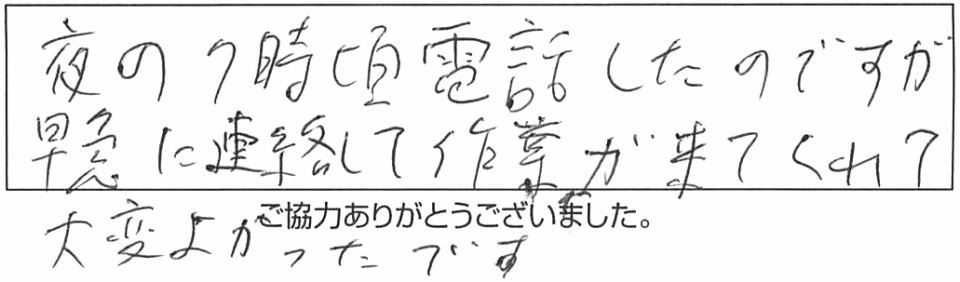 夜の7時頃電話したのですが
早急に連絡して作業が来てくれて
ご協力ありがとうございました。
大変よかったです